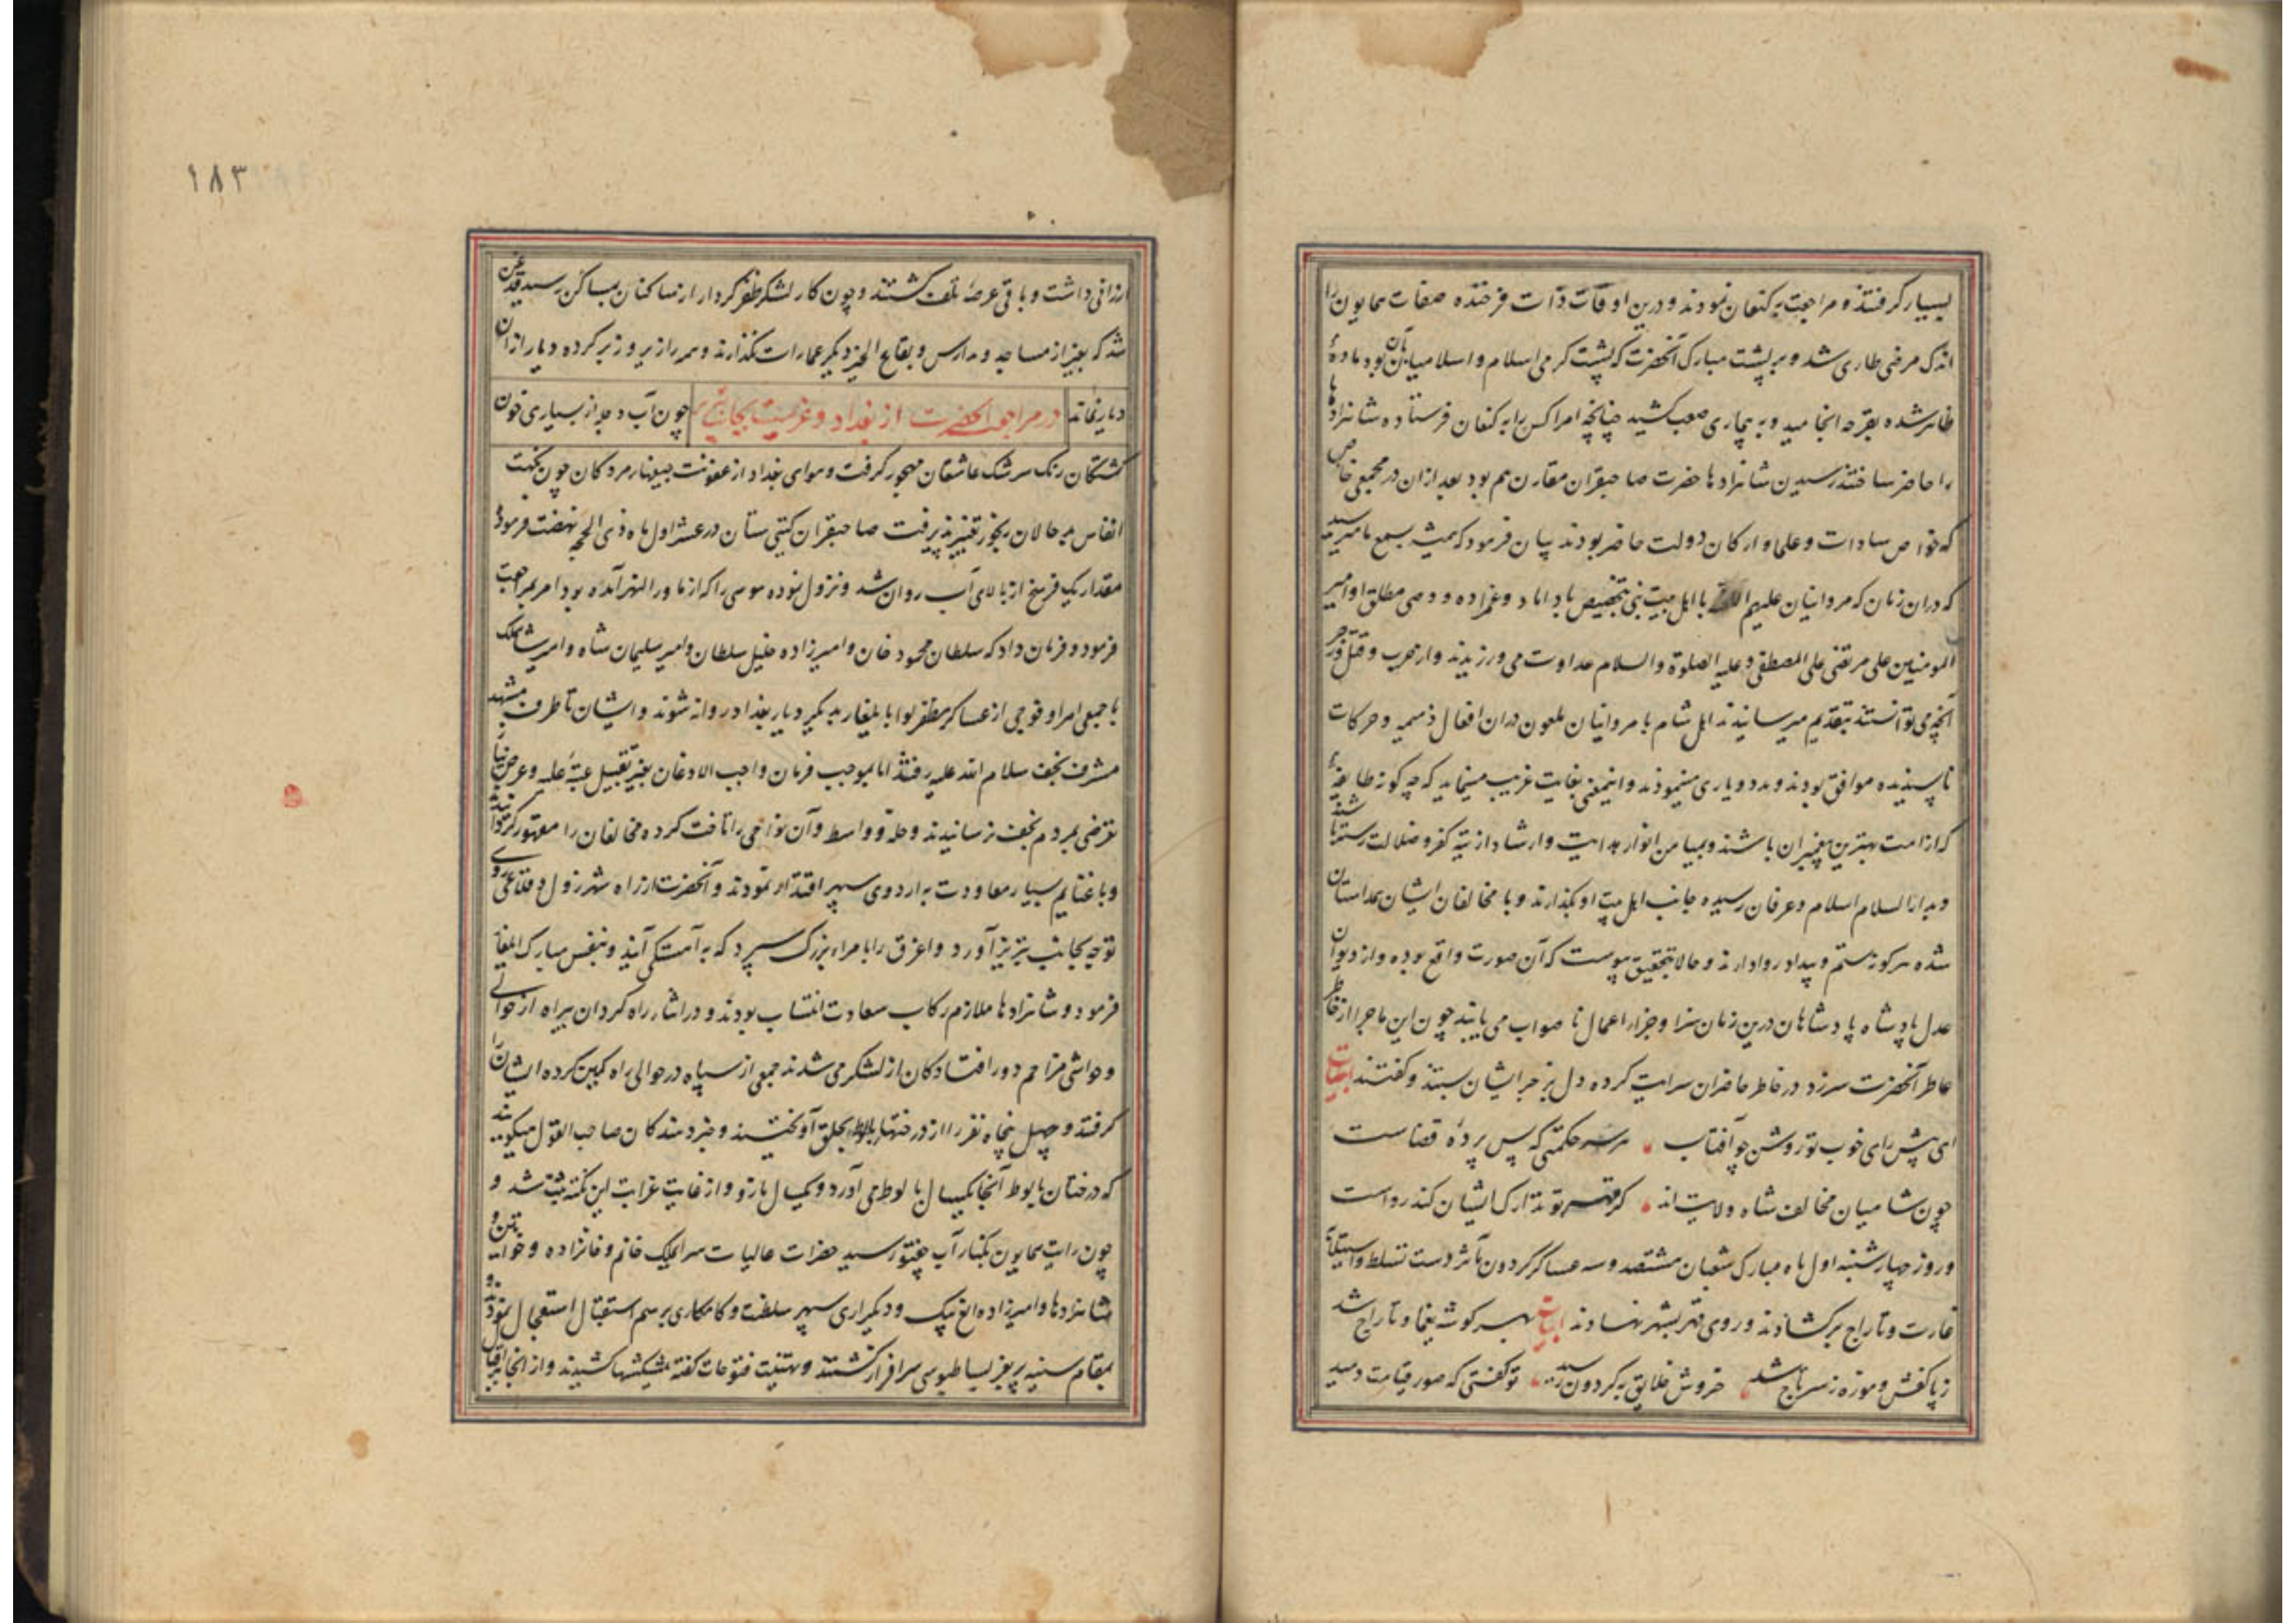 بسیار گرفتند و مراجعت به کنعان نمودند و درین اوقات ذات فرخنده صفات همایون را
اندک مرضی طاری شد و بر پشت مبارک آنحضرت که پشت گرمی اسلام و اسلامیان بآن بود ماده
ظاهر شده بقرحه انجامید و به بیماری صعب کشید چنانچه امرا کس را به کنعان فرستاده شاهزادها
را حاضر ساختند رسیدن شاهزادها حضرت صاحبقران مقارن هم بود بعد ازان در مجمعی خاص
که خواص سادات و علما و ارکان دولت حاضر بودند بیان فرمود که همیشه بسمع ما میرسید
که دران زمان که مروانیان علیهم با اهل بیت نبی بتخصیص با داماد و عمزاده و وصی مطلق او امیر
المومنین علی مرتضی علی المصطفی و علیه الصلوة والسلام عداوت می ورزیدند و از حرب و قتل و زجر
آنچه می توانستند بتقدیم میرسانیدند اهل شام با مروانیان ملعون دران افعال ذمیمه و حرکات
ناپسندیده موافق بودند و مدد و یاری مینمودند و اینمعنی بغایت غریب مینماید که چه گونه طایفه
که از امت بهترین پیغمبران باشند و بمیامن انوار هدایت و ارشاد از تیه کفر و ضلالت رسته باشند
و بدار السلام اسلام و عرفان رسیده جانب اهل بیت او بگذارند و با مخالفان ایشان همداستان
شده هرگونه ستم و بیداد روا دارند و حالا بتحقیق پیوست که آن صورت واقع بوده و از دیوان
عدل پادشاه پادشاهان درین زمان سزا و جزاء اعمال نا صواب می یابند چون این ماجرا از خاطر
عاطر آنحضرت سر زد در خاطر حاضران سرایت کرده دل بر جبر ایشان بستند و گفتند ابیات
ای پیش رای خوب تو روشن چو آفتاب هر سر حکمتی که پس پرده قضاست
چون شامیان مخالف شاه ولایت اند گر قهر تو تدارک ایشان کند رواست
و روز چهارشنبه اول ماه مبارک شعبان هشتصد و سه عساکر گردون مآثر دست تسلط و استیلا
غارت و تاراج برگشادند و روی قهر بشهر نهادند ابیات بهر گوشه یغما و تاراج شد
ز پا کفش و موزه ز سر تاج شد خروش خلایق به گردون رسید تو گفتی که صور قیامت دمید
۱۸۳
ارزانی داشت و باقی عرضه تلف گشتند و چون کار لشکر ظفر کردار از ساکنان بمساکن رسید قدغن
شد که بغیر از مساجد و مدارس و بقاع الخیر دیگر عمارات نگذارند و همه را زیر و زبر کرده دیار ازان
دیار نماند در مراجعت آنحضرت از بغداد و عزیمت بجانب تبریز چون آب دجله از بسیاری خون
کشتگان رنگ سرشک عاشقان مهجور گرفت و هوای بغداد از عفونت جیفهاء مردگان چون نکهت
انفاس بد حالان رنجور تغییر پذیرفت صاحبقران گیتی ستان در عشر اول ماه ذی الحجه نهضت فرموده
مقدار یک فرسخ از بالای آب روان شد و نزول نموده موسی را که از ماورا النهر آمده بود امر بمراجعت
فرمود و فرمان داد که سلطان محمود خان و امیرزاده خلیل سلطان و امیر سلیمان شاه و امیر شاهملک
با جمعی امرا و فوجی از عساکر مظفر لوا بایلغار به دیگر دیار بغداد روانه شوند و ایشان تا طرف مشهد
مشرف نجف سلام الله علیه رفتند اما بموجب فرمان واجب الاذعان بغیر تقبیل عتبه علیه و عرض نیاز
تعرضی بمردم نجف نرسانیدند و حله و واسط و آن نواحی را تاخت کرده مخالفان را مقهور گردانیدند
و با غنایم بسیار معاودت به اردوی سپهر اقتدار نمودند و آنحضرت از راه شهرزول و قلاغی روی
توجه بجانب تبریز آورد و اغرق را بامراء بزرگ سپرد که به آهستگی آیند و بنفس مبارک ایلغار
فرمود و شاهزادها ملازم رکاب سعادت انتساب بودند و در اثناء راه کردان بیراه از حوالی
و حواشی مزاحم دور افتادگان از لشکر می شدند جمعی از سپاه در حوالی راه کمین کرده ایشان را
گرفتند و چهل پنجاه نفر را از درختهاء بلوط بحلق آویختند و خردمندگان صاحب القول میگویند
که درختان بلوط آنجا یکسال بلوط می آورد و یکسال مازو و از غایت غرابت این نکته ثبت شد و
چون رایت همایون بکنار آب جغتو رسید حضرات عالیات سرای ملک خانم و خانزاده و خواتین و
شاهزادها و امیرزاده الغ بیک و دیگر دراری سپهر سلطنت و کامکاری برسم استقبال استعجال نمودند و
بمقام سنیه پریغر بساطبوسی سرافراز گشتند و تهنیت فتوحات گفته پیشکشها کشیدند و از انجا